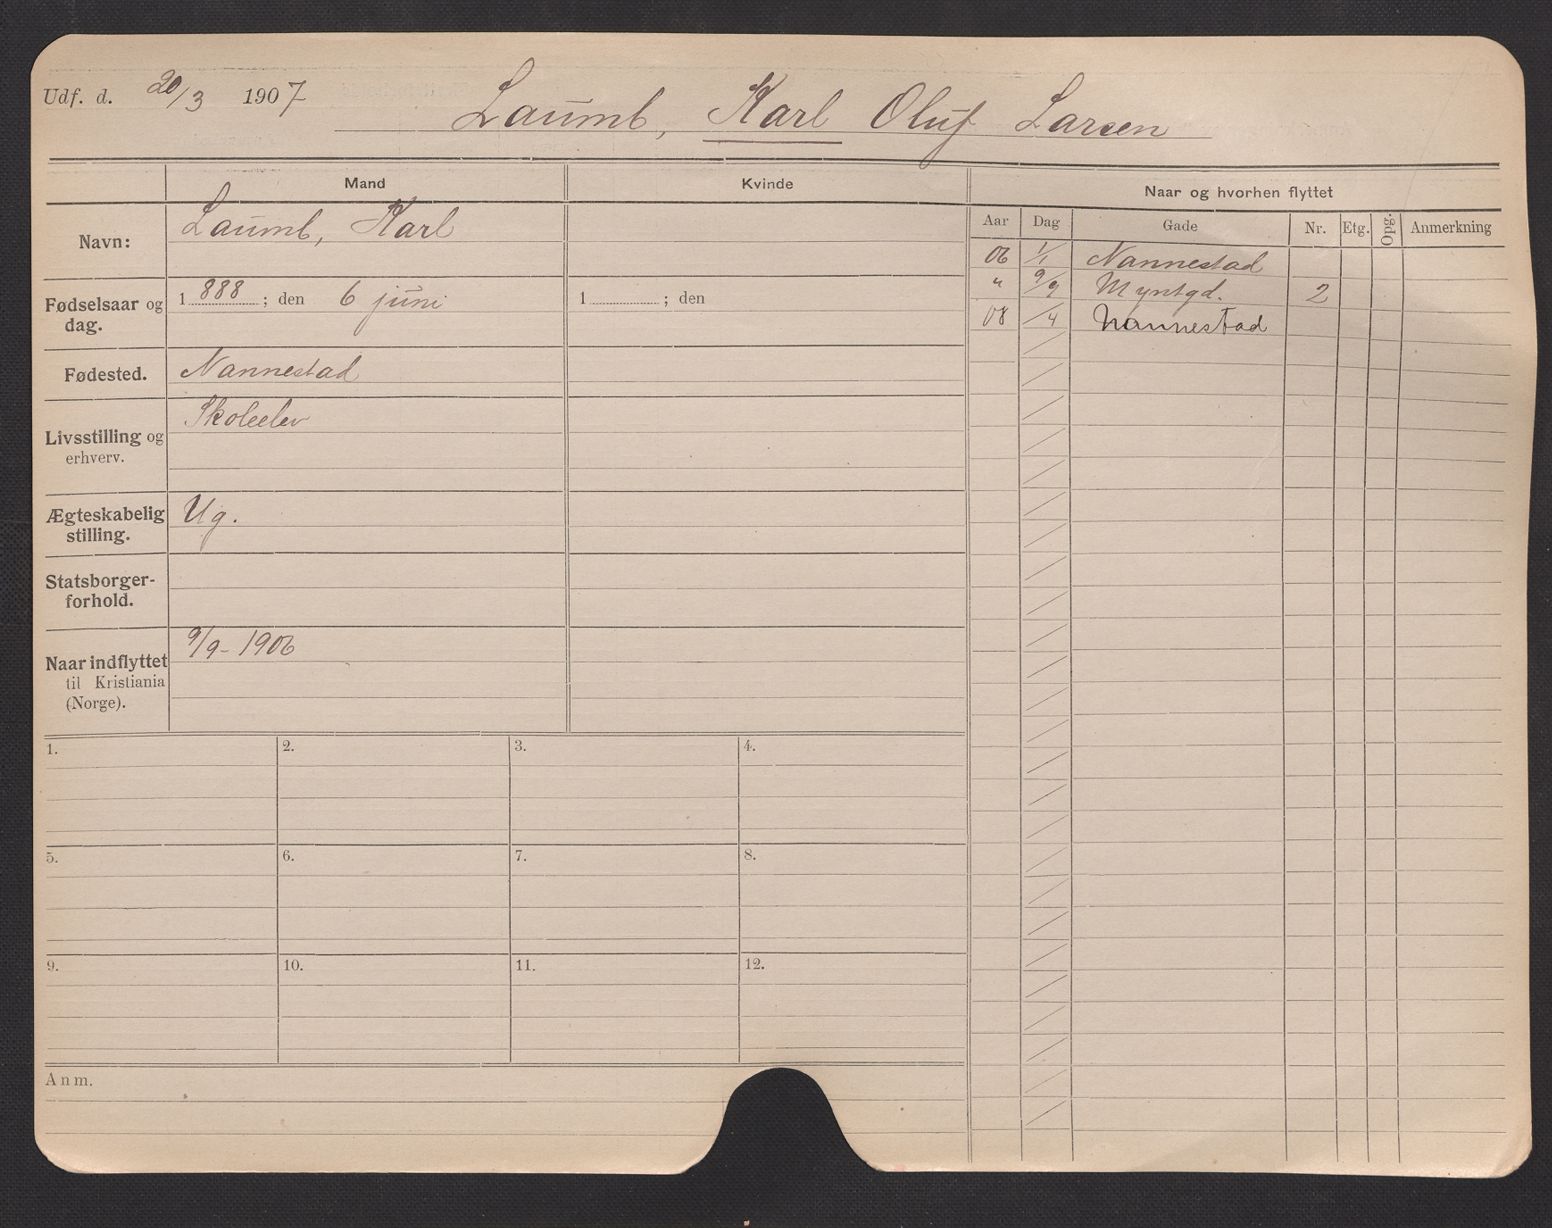 Udf. d. 20/3 1907 Laumb, Karl Oluf Larsen
Mand Kvinde Naar og hvorhen flyttet
Navn: Laumb, Karl
Fødselsaar og dag. 1888; den 6 juni 1 ; den
Fødested. Nannestad
Livsstilling og erhverv. Skoleelev
Ægteskabelig stilling. Ug.
Statsborger-
forhold.
Naar indflyttet til Kristiania (Norge). 9/9-1906
Aar Dag Gade Nr. Etg. Opg. Anmerkning
06 1/1 Nannestad
" 9/9 Myntgd. 2
08 /4 Nannestad
1. 2. 3. 4.
5. 6. 7. 8.
9. 10. 11. 12.
Anm.